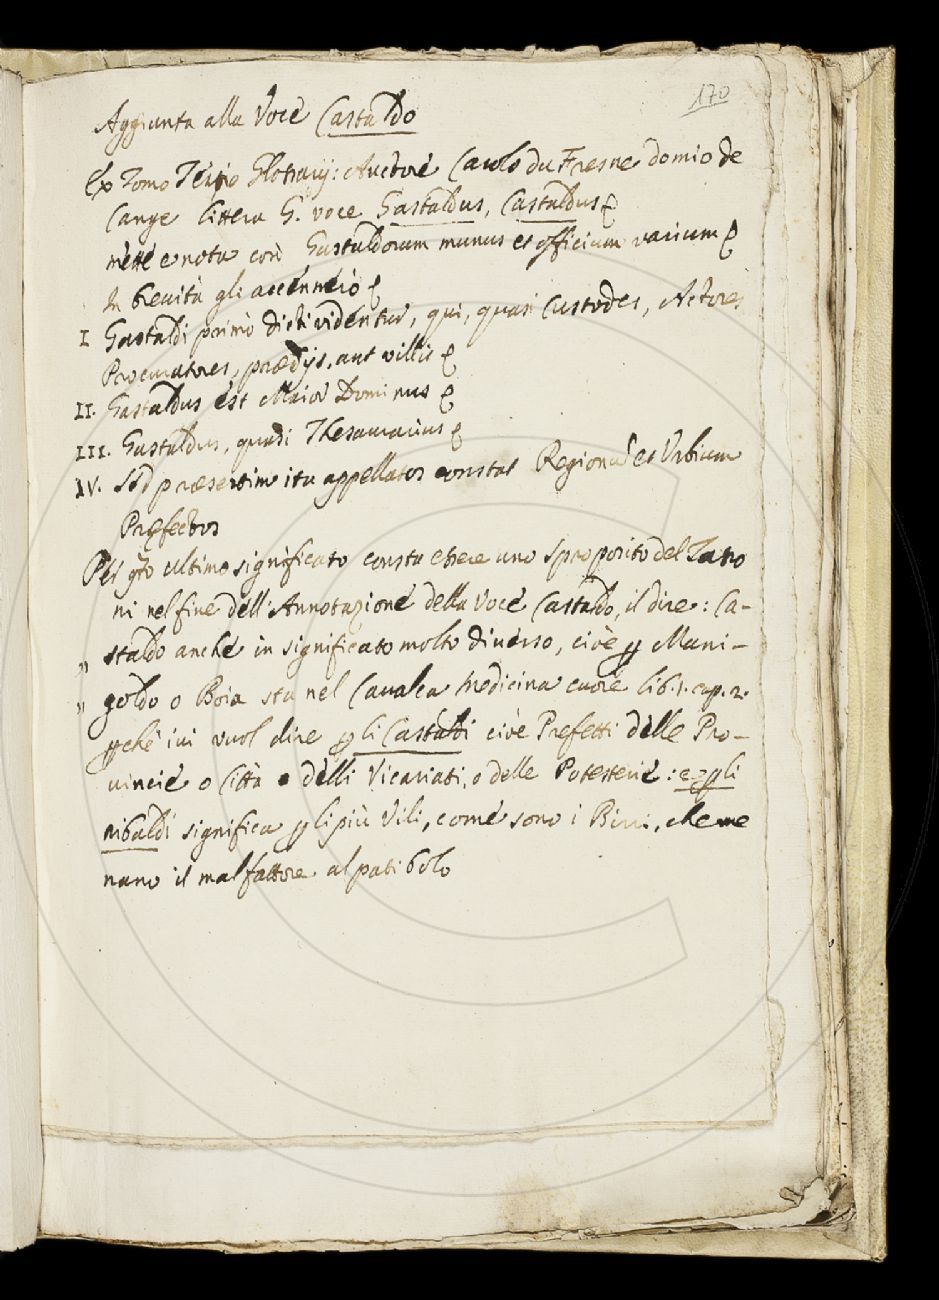 170
Aggiunta alla Voce Castaldo
Ex Tomo Terzio Glossarij: Auctore Carolo du Fresne domio de
Cange littera G. voce Gastaldus, Castaldus
mette e nota così Gastaldorum munus et officium varium
In brevità gli accennerò
I Gastaldi primò dicti videntur, qui, quasi Custodes, Actores
Procuratores, prædijs, aut villis
II. Gastaldus est Maior Dominus
III. Gastaldus, quasi Thesaurarius
IV. Sed præsertim ita appellatos constat Regionum et Urbium
Præfectos
Per qto ultimo significato consta essere uno sproposito del
ni nel fine dell'Annotazione della Voce Castaldo, il dire: Ca-
" staldo anche in significato molto diverso, cioè p Mani-
" goldo o Boia sta nel Cavalca Medicina cuore lib. 1. cap. 2.
pchè ivi vuol dire p li Castaldi cioè Prefetti delle Pro-
vincie o Città o delli Vicariati, o delle Potesterie: e p gli
ribaldi significa p li più Vili, come sono i Birri, che me
nano il malfattore al patibolo